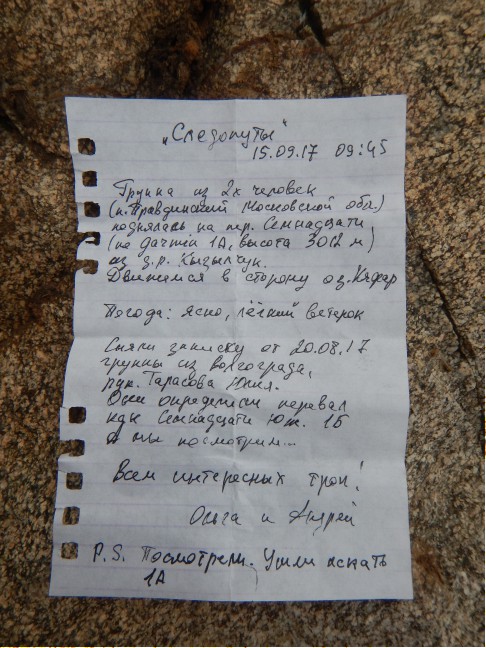 „Следопуты"
15.09.17 09:45
Группа из 2х человек
(п. Правдинский Московской обл.)
поднялась на пер. Семнадцати
(по данным 1А, высота 3012 м)
из д.р. Кызылчук.
Движемся в сторону оз. Кяфар
Погода: ясно, лёгкий ветерок
Сняли записку от 20.08.17
группы из Волгограда,
рук. Тарасова Юлия.
Они определили перевал
как Семнадцати Юж. 1Б
а мы посмотрим...
Всем интересных троп!
Ольга и Андрей
P.S. Посмотрели. Ушли искать
1А